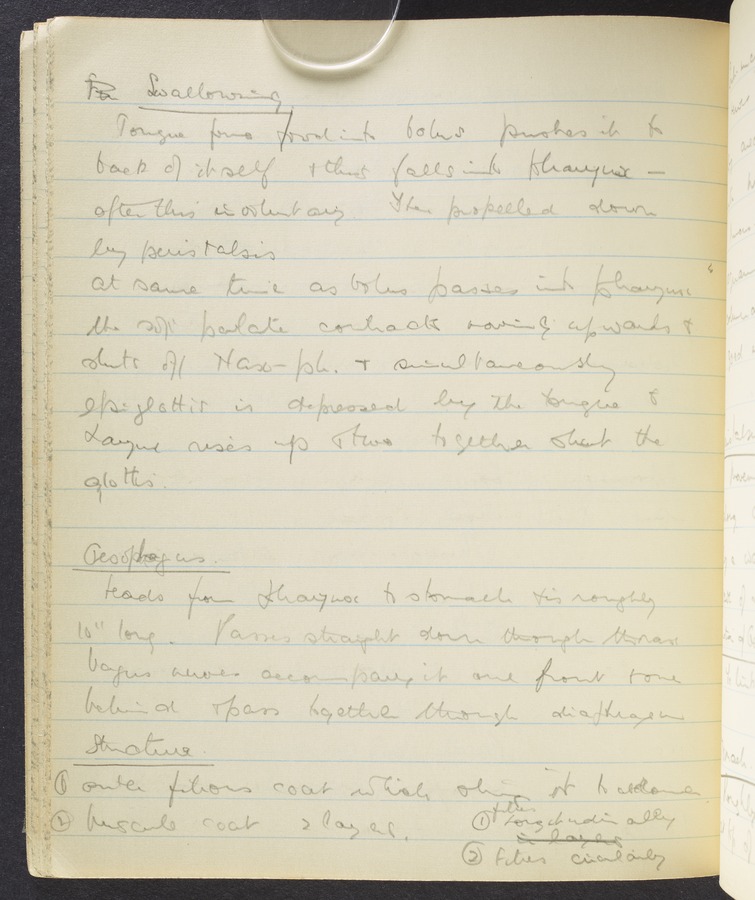 Swallowing
Tongue forms food into bolus pushes it to
back of itself & thus falls into pharynx —
after this involuntary. Then propelled down
by peristalsis
at same time as bolus passes into pharynx
the soft palate contracts moving upwards &
shuts off Naso-ph. & simultaneously
epiglottis is depressed by the tongue &
Larynx rises up & two together shut the
glottis.
Oesophagus.
Leads from pharynx to stomach & is roughly
10" long. Passes straight down through thorax
Vagus nerves accompany it one front & one
behind & pass together through diaphragm
Structure.
① outer fibrous coat which
② Muscule coat 2 layers. ① fibres Longitudinally
in layers
② Fibres circularly